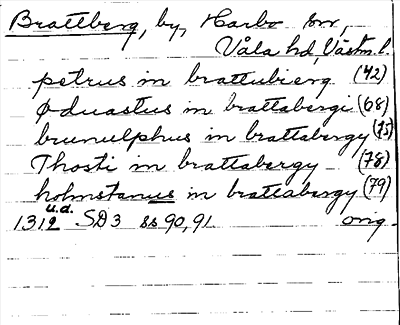 Brattberg, by, Harbo sn,
Våla hd, Västm. l.
petrus in brattubierg (42)
Øduastus in brattabergi (68)
brunulphus in brattabergy (75)
Thosti in brattabergy (78)
holmstanus in brattabergy (79)
1312 u.d. SD3 ss 90, 91. orig.